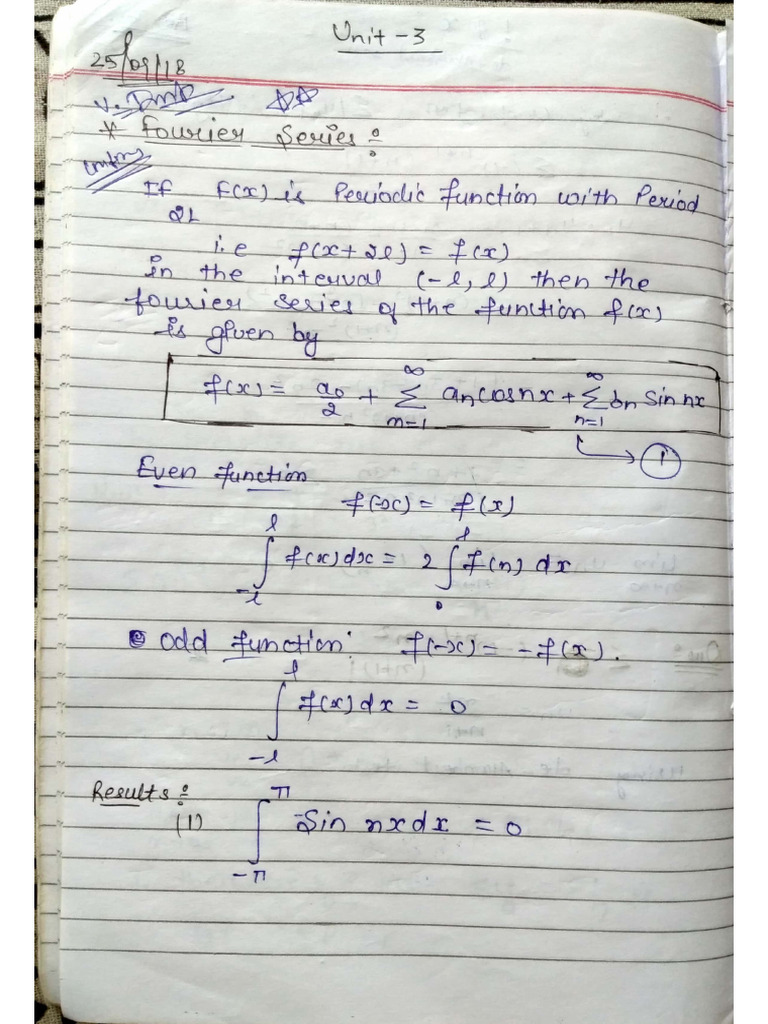 Unit - 3
25/09/18
V. Imp.
* Fourier Series :-
If F(x) is Periodic function with Period
2L
i.e f(x + 2l) = f(x)
in the interval (-l, l) then the
fourier series of the function f(x)
is given by
f(x) = a₀/2 + ∑_{n=1}^{∞} aₙ cosnx + ∑_{n=1}^{∞} bₙ sin nx
→ (1)
Even function
f(-x) = f(x)
∫_{-l}^{l} f(x) dx = 2 ∫_{0}^{l} f(n) dx
Odd function: f(-x) = -f(x).
∫_{-l}^{l} f(x) dx = 0
Results :-
(1) ∫_{-π}^{π} Sin nx dx = 0